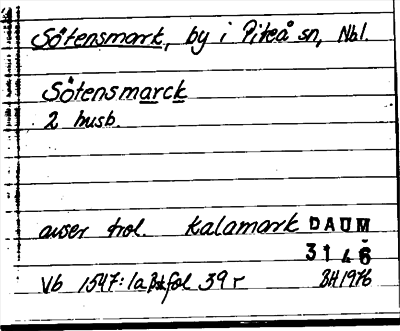 Sötensmark, by i Piteå sn, Nbl.
Sötensmarck
2 husb.
avser trol. Kalamark DAUM
3146
Vb 1547:1a β+ fol 39r BH 1976